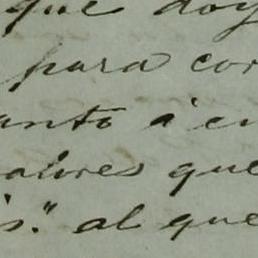 que doy
para cor
anto á cu
adores que
is." al que